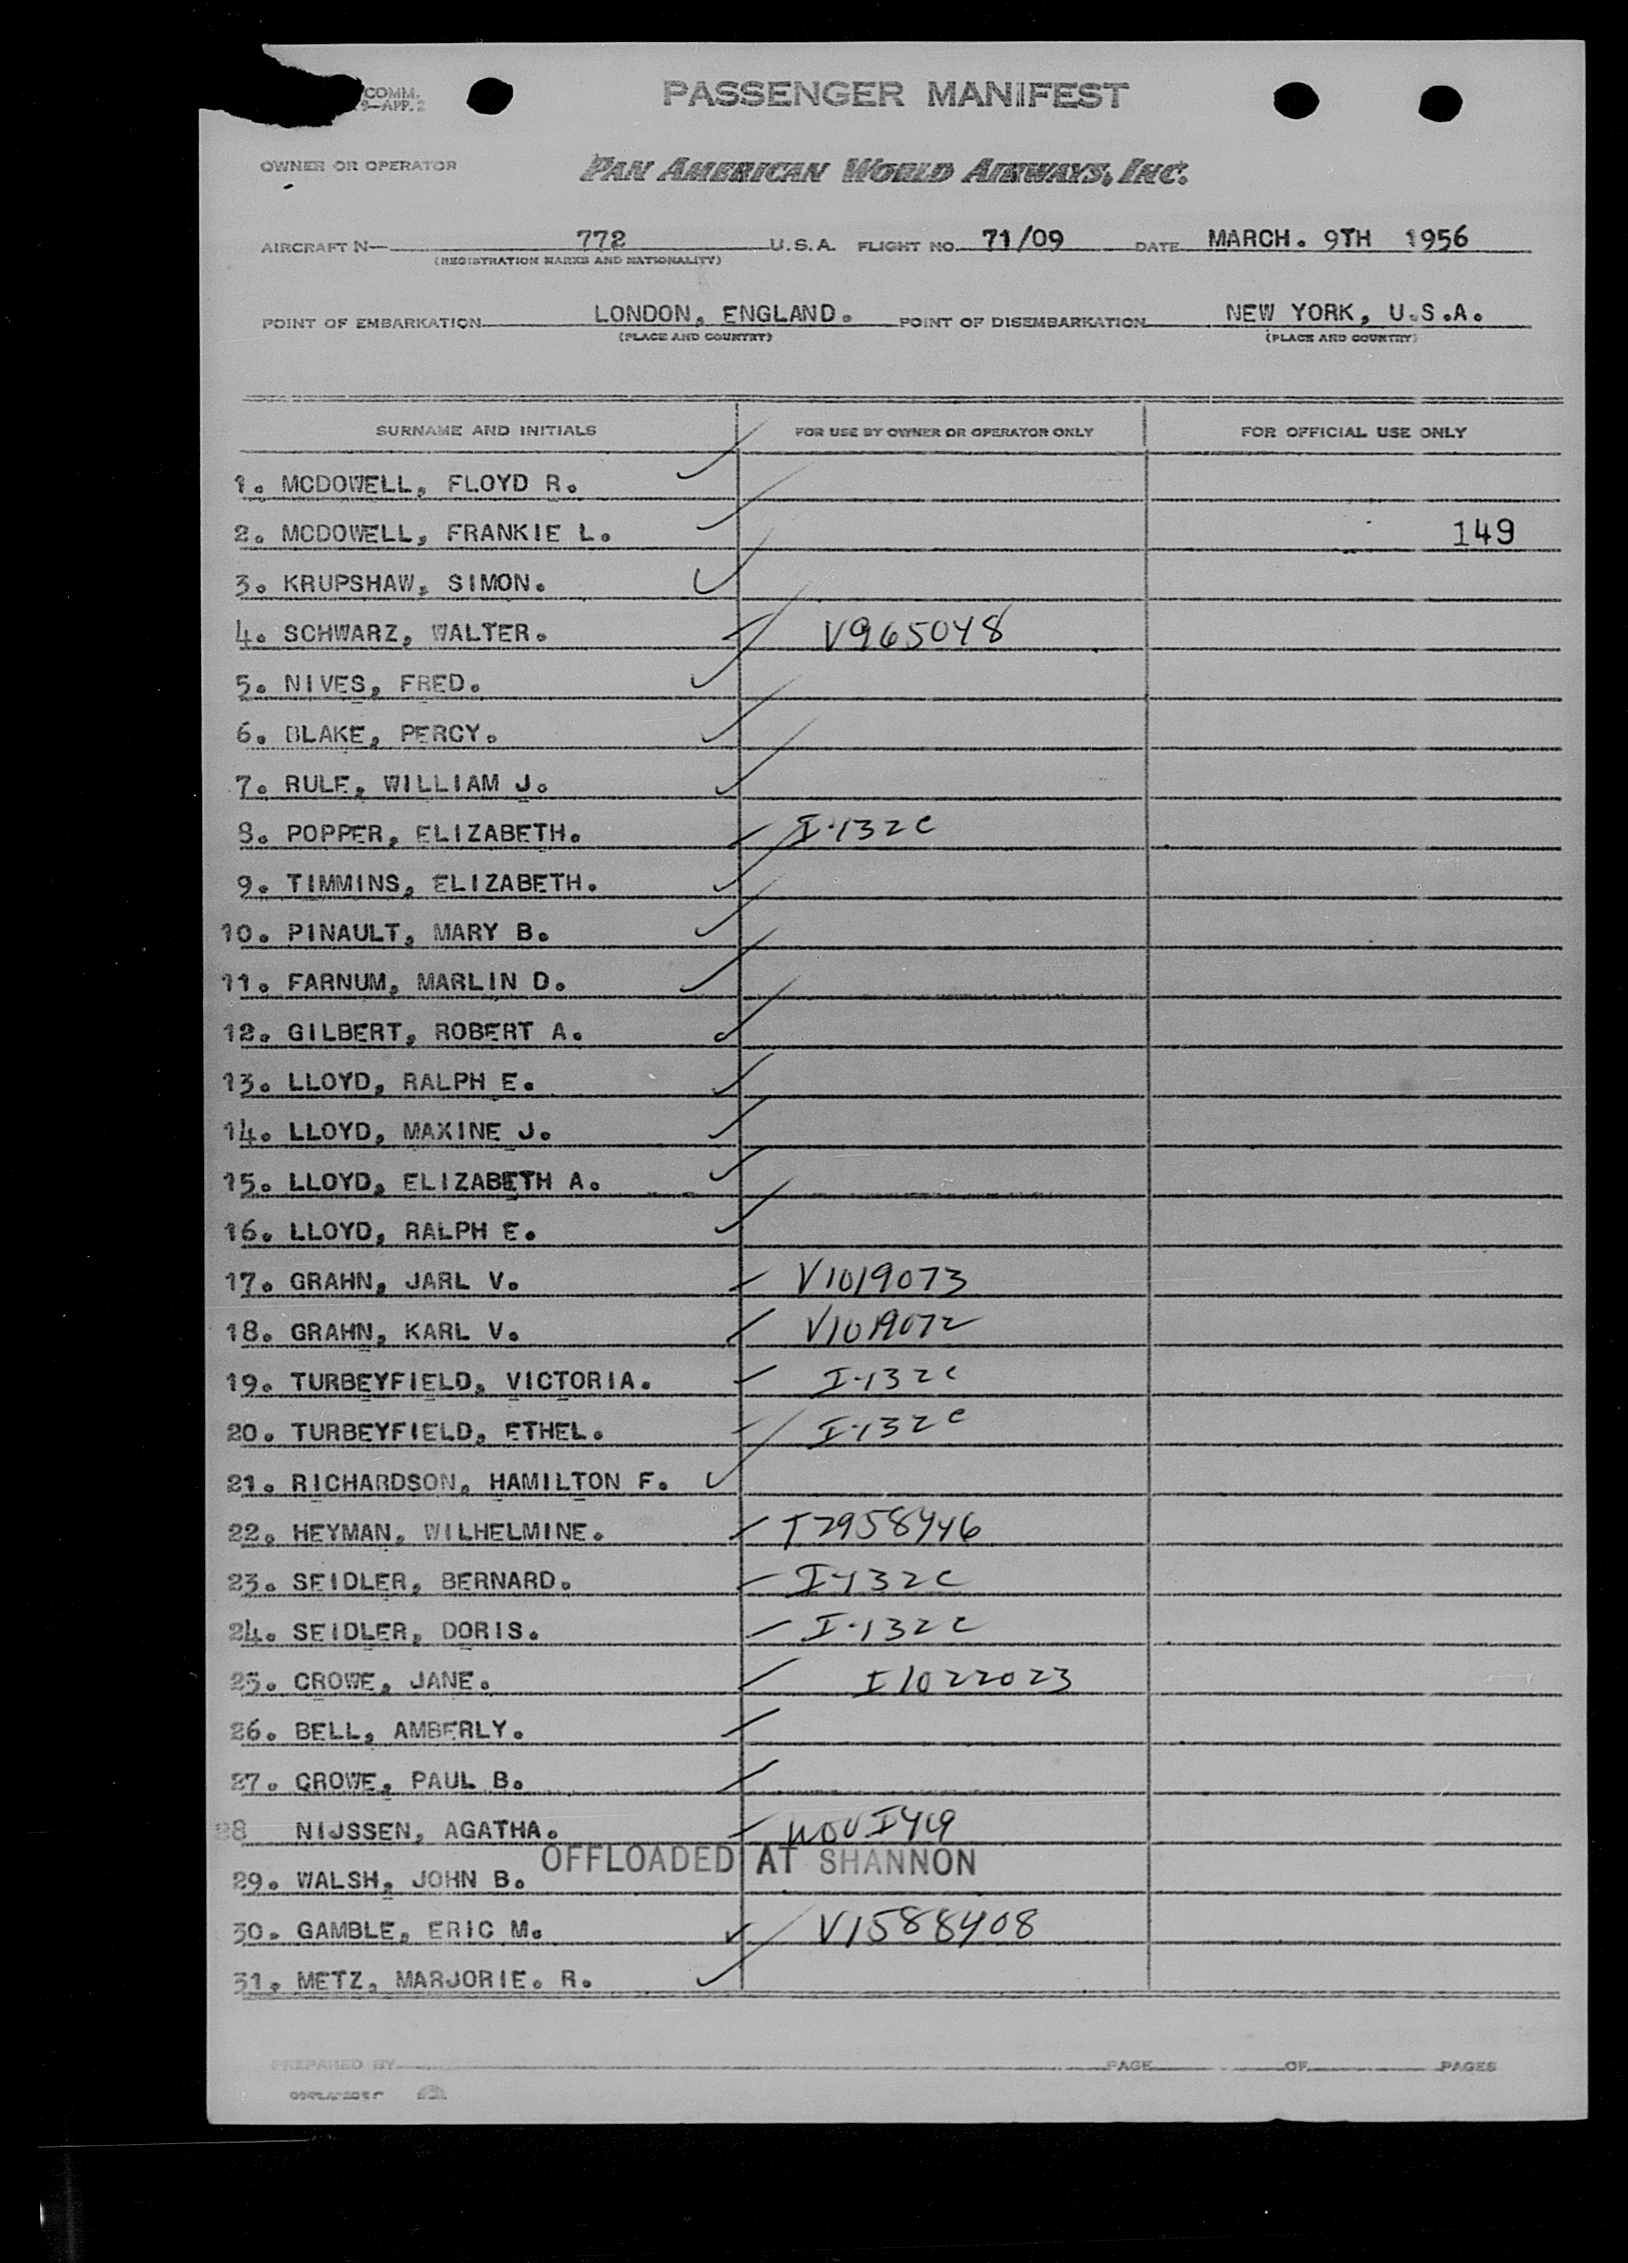 COMM.
9—APP. 2
PASSENGER MANIFEST
OWNER OR OPERATOR PAN AMERICAN WORLD AIRWAYS, INC.
AIRCRAFT N— 772 U.S.A. FLIGHT NO. 71/09 DATE MARCH. 9TH 1956
(REGISTRATION MARKS AND NATIONALITY)
POINT OF EMBARKATION LONDON, ENGLAND. POINT OF DISEMBARKATION NEW YORK, U.S.A.
(PLACE AND COUNTRY) (PLACE AND COUNTRY)
SURNAME AND INITIALS FOR USE BY OWNER OR OPERATOR ONLY FOR OFFICIAL USE ONLY
1. MCDOWELL, FLOYD R.
2. MCDOWELL, FRANKIE L. 149
3. KRUPSHAW, SIMON.
4. SCHWARZ, WALTER. V965048
5. NIVES, FRED.
6. BLAKE, PERCY.
7. RULE, WILLIAM J.
8. POPPER, ELIZABETH. I-132C
9. TIMMINS, ELIZABETH.
10. PINAULT, MARY B.
11. FARNUM, MARLIN D.
12. GILBERT, ROBERT A.
13. LLOYD, RALPH E.
14. LLOYD, MAXINE J.
15. LLOYD, ELIZABETH A.
16. LLOYD, RALPH E.
17. GRAHN, JARL V. V1019073
18. GRAHN, KARL V. V1019072
19. TURBEYFIELD, VICTORIA. I-132C
20. TURBEYFIELD, ETHEL. I-132C
21. RICHARDSON, HAMILTON F.
22. HEYMAN, WILHELMINE. T2958446
23. SEIDLER, BERNARD. I-132C
24. SEIDLER, DORIS. I-132C
25. CROWE, JANE. I1022023
26. BELL, AMBERLY.
27. CROWE, PAUL B.
28 NIJSSEN, AGATHA.
OFFLOADED AT SHANNON
29. WALSH, JOHN B.
30. GAMBLE, ERIC M. V1588408
31. METZ, MARJORIE. R.
PREPARED BY PAGE OF PAGES